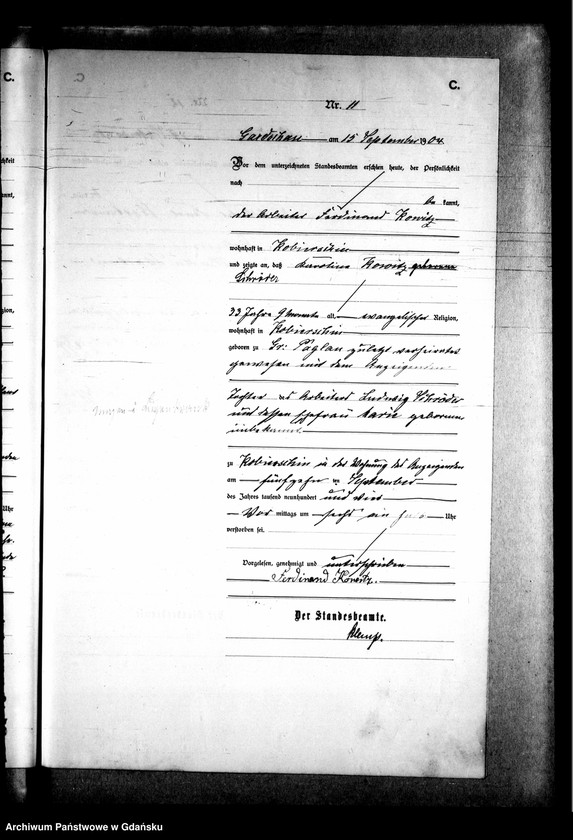 C.
C.
Nr. 11
Gardschau am 15 September 1904.
Vor dem unterzeichneten Standesbeamten erschien heute, der Persönlichkeit
nach
kannt,
der Arbeiter Ferdinand Kowitz
wohnhaft in Kobierschin
und zeigte an, daß Karoline Kowitz geborene
Schröder
33 Jahre 9 Monate alt, evangelischer Religion,
wohnhaft in Kobierschin
geboren zu Gr. Paglau zuletzt verheiratet
gewesen mit dem Anzeigenden
Tochter des Arbeiters Ludwig Schröder
und dessen Ehefrau Marie geborenen
unbekannt
zu Kobierschin in der Wohnung des Anzeigenden
am fünfzehn ten September
des Jahres tausend neunhundert und vier
Vor mittags um sechs ein Uhr
verstorben sei.
Vorgelesen, genehmigt und unterschrieben
Ferdinand Kowitz.
Der Standesbeamte.
Archiwum Państwowe w Gdańsku